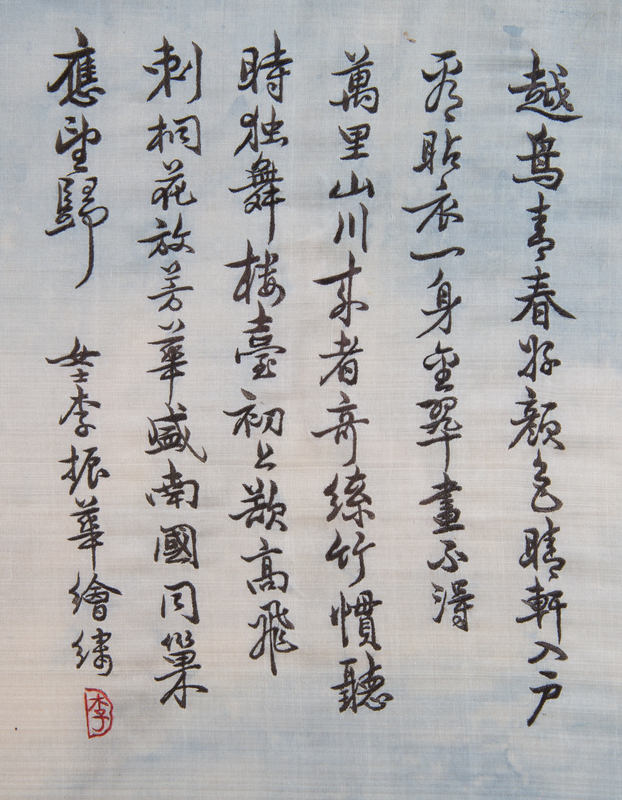 越鳥青春好顏色晴軒入戶
看貼衣一身金翠畫不得
萬里山川來者奇絲竹慣聽
時独舞樓臺初上欲高飛
刺桐花放芳華盛南國同巢
應望歸 女士李振華繪繡
李